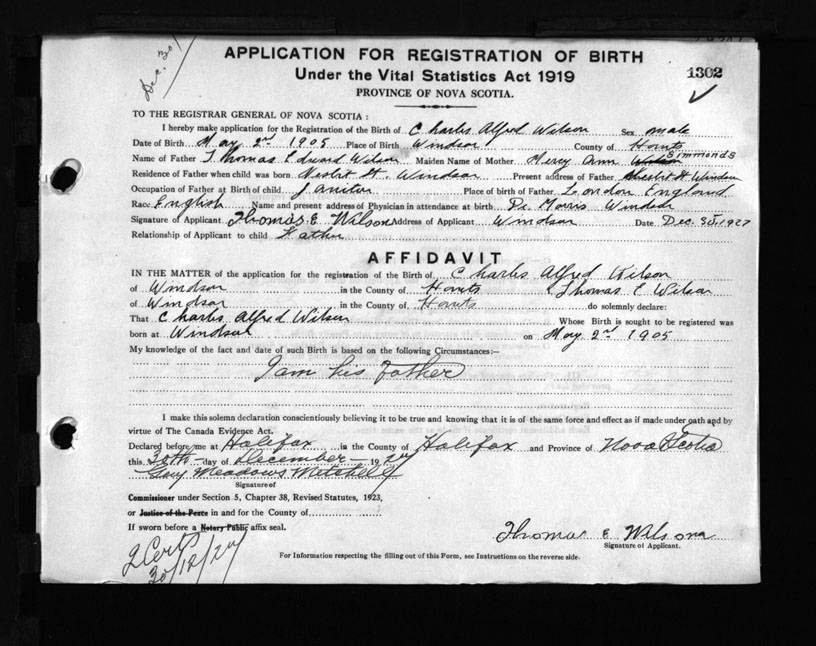 Dec. 30
APPLICATION FOR REGISTRATION OF BIRTH
Under the Vital Statistics Act 1919
1302
PROVINCE OF NOVA SCOTIA.
TO THE REGISTRAR GENERAL OF NOVA SCOTIA:
I hereby make application for the Registration of the Birth of Charles Alfred Wilson Sex male
Date of Birth May 2nd 1905 Place of Birth Windsor County of Hants
Name of Father Thomas Edward Wilson Maiden Name of Mother Mercy Ann Simmonds
Residence of Father when child was born Nesbit St. Windsor Present address of Father Nesbit St. Windsor
Occupation of Father at Birth of child Janitor Place of birth of Father London England
Race English Name and present address of Physician in attendance at birth Dr. Morris Windsor
Signature of Applicant Thomas E Wilson Address of Applicant Windsor Date Dec. 30 1927
Relationship of Applicant to child Father
AFFIDAVIT
IN THE MATTER of the application for the registration of the Birth of Charles Alfred Wilson
of Windsor in the County of Hants Thomas E Wilson
of Windsor in the County of Hants do solemnly declare:
That Charles Alfred Wilson Whose Birth is sought to be registered was
born at Windsor on May 2nd 1905
My knowledge of the fact and date of such Birth is based on the following Circumstances:—
I am his Father
I make this solemn declaration conscientiously believing it to be true and knowing that it is of the same force and effect as if made under oath and by
virtue of The Canada Evidence Act.
Declared before me at Halifax in the County of Halifax and Province of Nova Scotia
this 30th day of December 1927
Gary Meadows Mitchell
Signature of
Commissioner under Section 5, Chapter 38, Revised Statutes, 1923,
or Justice of the Peace in and for the County of
If sworn before a Notary Public affix seal.
Thomas E Wilson
Signature of Applicant.
2 Certs
30/12/27
For Information respecting the filling out of this Form, see Instructions on the reverse side.